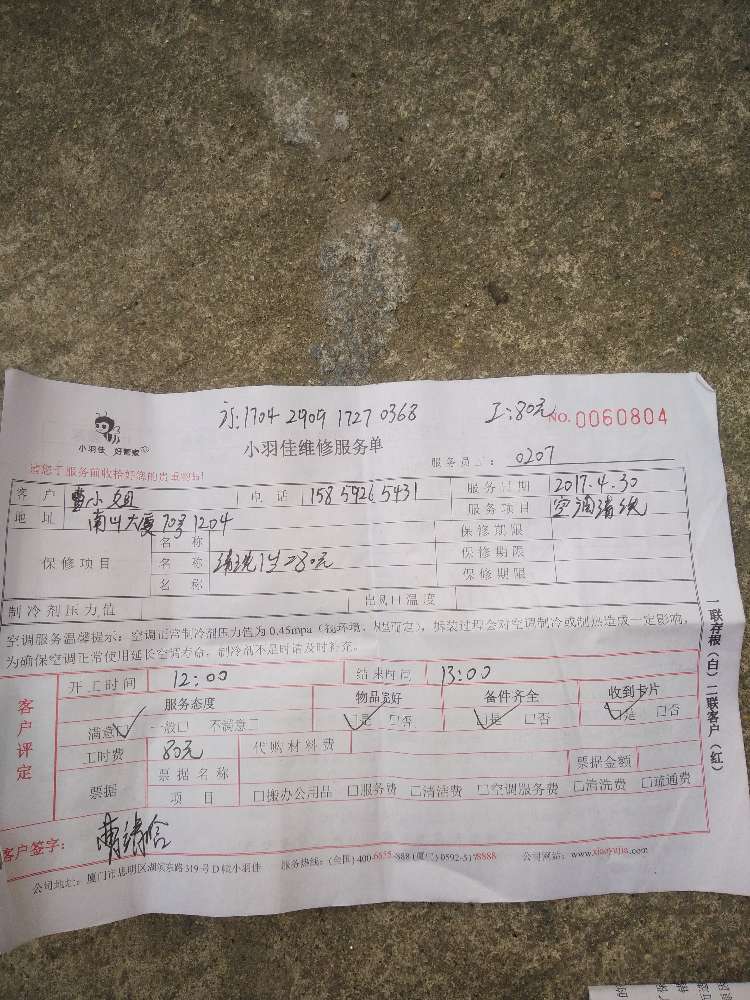 方:1704 2909 1727 0368 工:80元
NO. 0060804
小羽佳 好管家
小羽佳维修服务单
请您于服务前收拾好您的贵重物品!
服务员工: 0207
客户 曹小姐 电话 158 5926 5431 服务日期 2017.4.30
地址 南山大厦70号1204 服务项目 空调清洗
保修项目
名称 保修期限
名称 清洗1台=80元 保修期限
名称 保修期限
制冷剂压力值 出风口温度
空调服务温馨提示:空调正常制冷剂压力值为0.45mpa(视环境、机型而定),拆装过程会对空调制冷或制热造成一定影响,
为确保空调正常使用延长空调寿命,制冷剂不足时请及时补充。
客户评定
开工时间 12:00 结束时间 13:00
服务态度 物品完好 备件齐全 收到卡片
满意☑ 一般口 不满意口 ☑是 口否 ☑是 口否 ☑是 口否
工时费 80元 代购材料费
票据 票据名称 票据金额
项目 口搬办公用品 口服务费 口清洁费 口空调服务费 口清洗费 口疏通费
客户签字: 曹
公司地址:厦门市思明区湖滨东路319号D幢小羽佳 服务热线:(全国)400-6655-888(厦门)0592-5178888 公司网站:www.xiaoyujia.com
一联存根(白)二联客户(红)